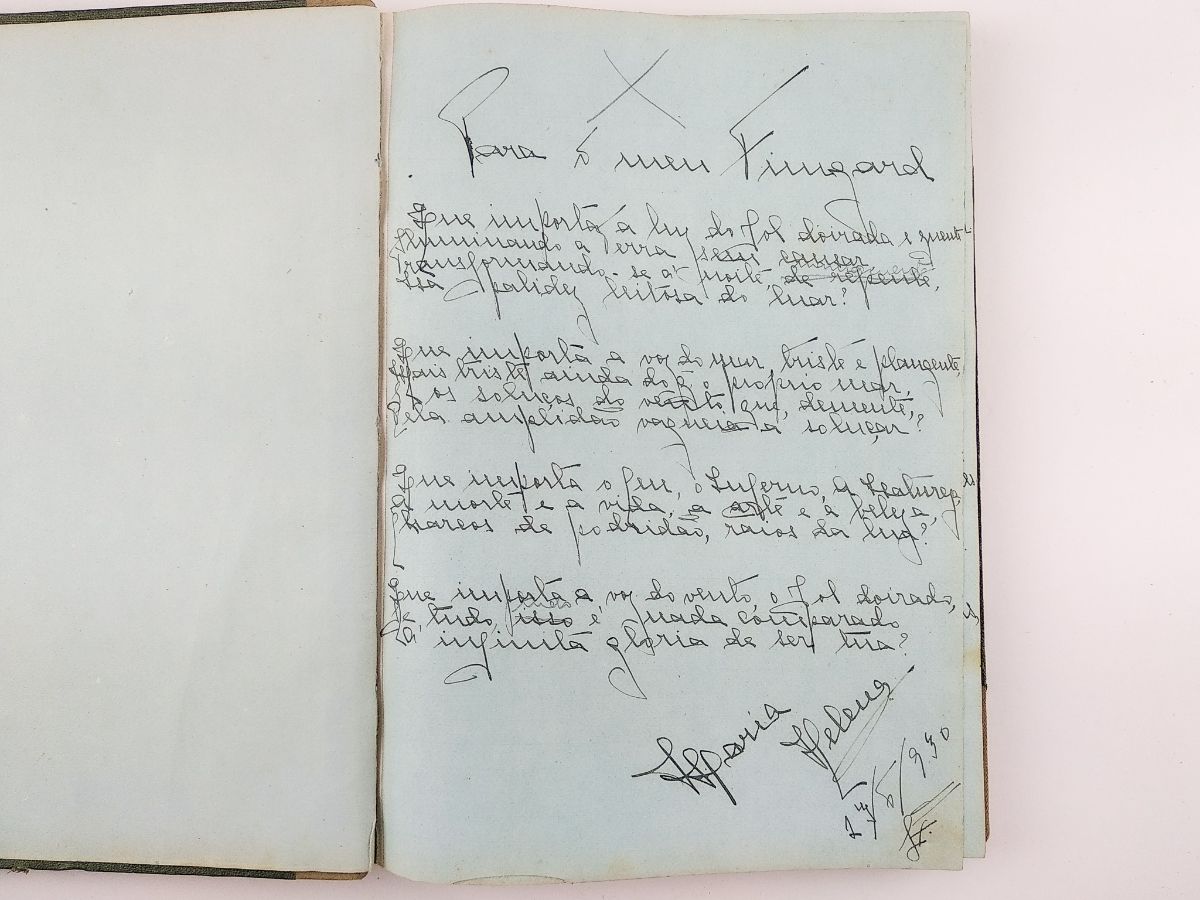 Para o meu Fimgard
Que importa a luz do Sol doirada e quente
Iluminando a Terra sem cansar
Transformando-se á noite, de repente,
Na palidez leitosa do luar?
Que importa a voz do mar, triste e plangente,
Mais triste ainda do q. o proprio mar,
E os soluços do vento que, demente,
Pela amplidão vagueia a soluçar?
Que importa o Ceu, o Inferno, a Natureza,
A morte e a vida, a arte e a beleza,
Charcos de podridão, raios da luz?
Que importa a voz do vento, o Sol doirado,
Se tudo, isso é nada comparado
Á infinita gloria de ser tua?
Maria Helena
5/930